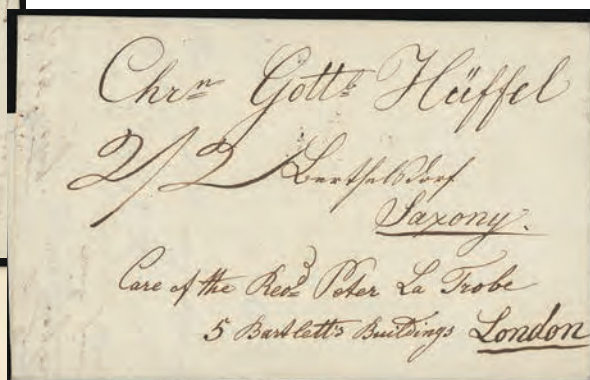 Chrn Gottb Hüffel
2/2 Berthelsdorf
Saxony.
Care of the Revd Peter La Trobe
5 Bartlett's Buildings London